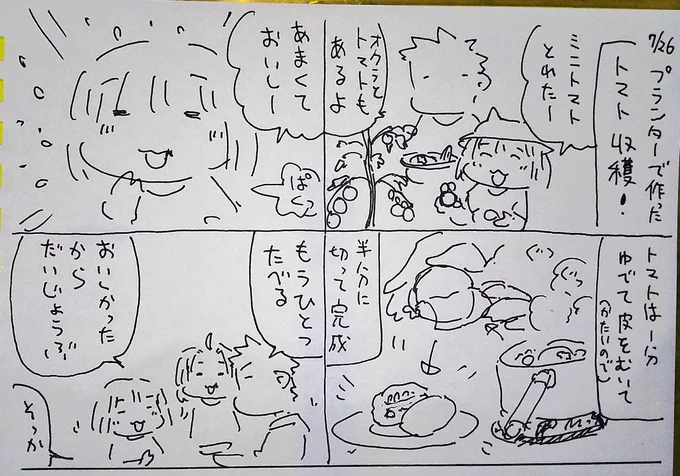 7/26
プランターで作った
トマト収穫!
ミニトマト
とれたー
オクラと
トマトも
あるよ
あまくて
おいしー
ぱくっ
トマトは一分
ゆでて皮をむいて
(かたいので)
ぐつ
ぐつ
半分に
切って完成
もうひとつ
たべる
おいしかった
から
だいじょうぶ
そっか